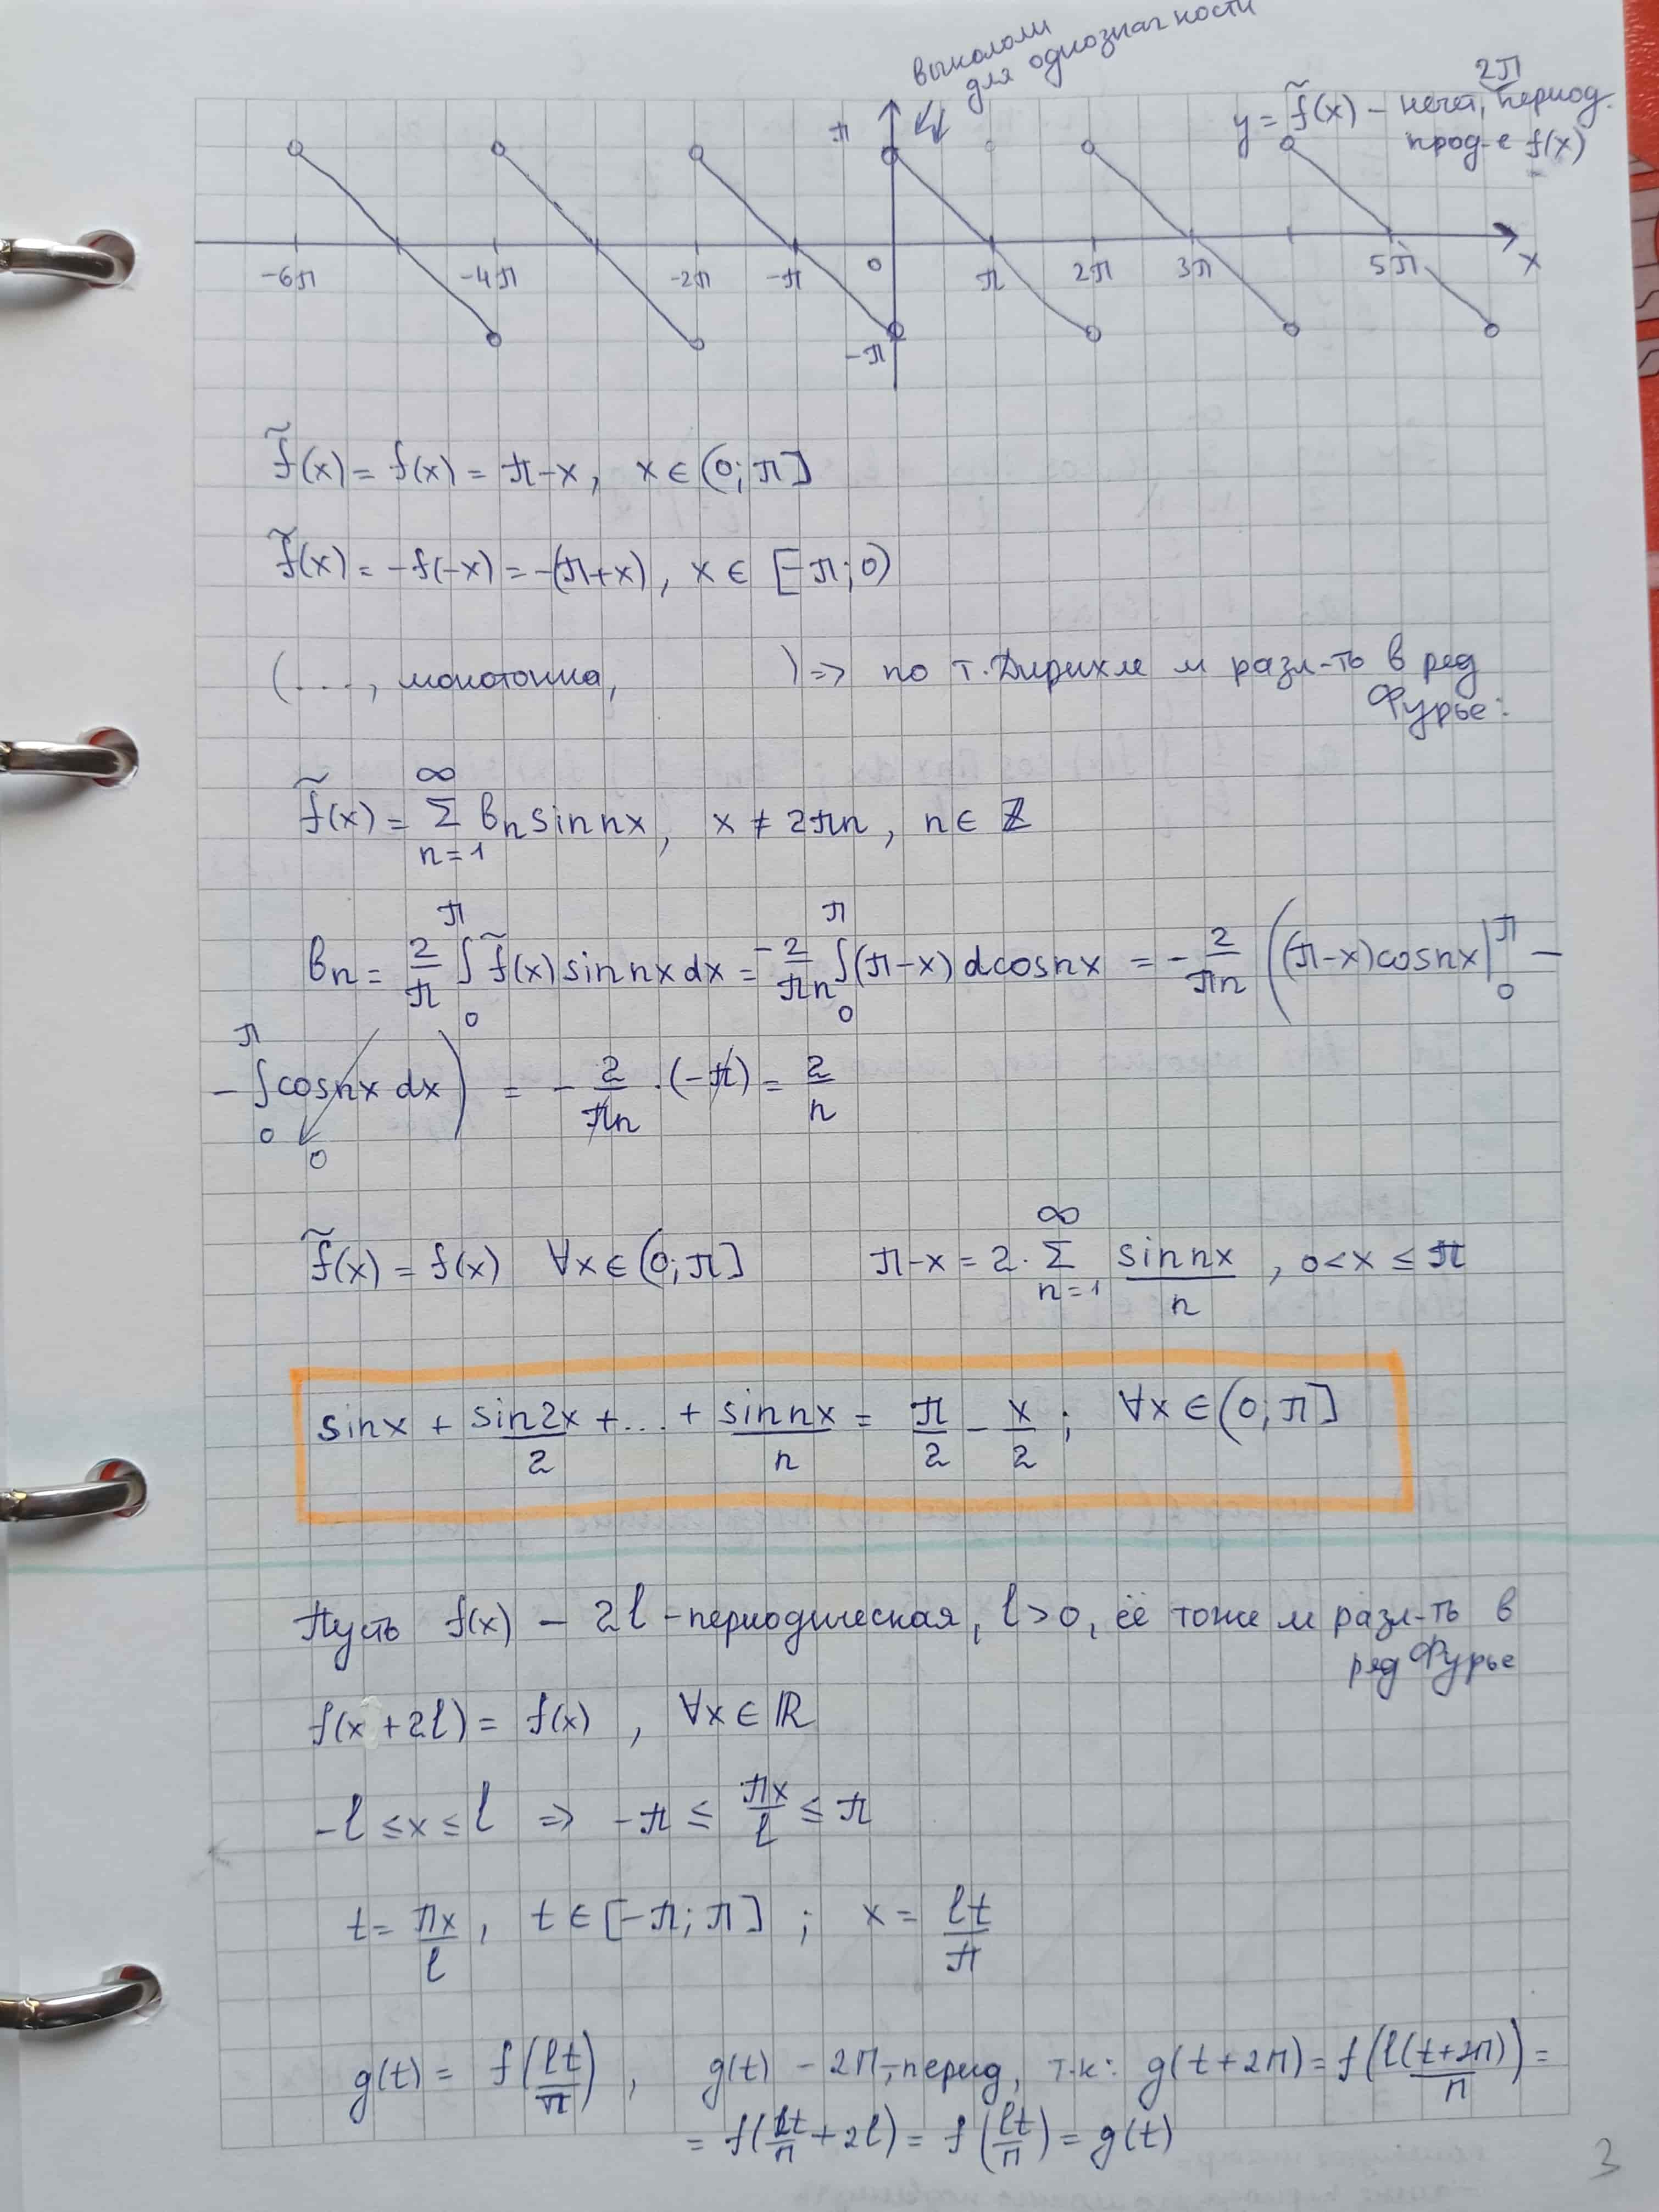 выкололи
для однозначности
y = f̃(x) – нечет, 2π период.
прод-е f(x)
π
-6π -4π -2π -π 0 π 2π 3π 5π x
-π
f̃(x) = f(x) = π-x, x ∈ (0; π]
f̃(x) = -f(-x) = -(π+x), x ∈ [-π; 0)
(...., монотонна, ) => по т. Дирихле м разл-ть в ряд
Фурье:
f̃(x) = ∞ Σ n=1 bₙ sin nx, x ≠ 2πn, n ∈ ℤ
bₙ = 2/π ∫₀^π f̃(x) sin nx dx = -2/πn ∫₀^π (π-x) d cos nx = - 2/πn ( (π-x) cos nx |₀^π -
- ∫₀^π cos nx dx ) = - 2/πn · (-π) = 2/n
0
f̃(x) = f(x) ∀x ∈ (0; π] π-x = 2· ∞ Σ n=1 sin nx / n , 0 < x ≤ π
sin x + sin 2x / 2 + ... + sin nx / n = π/2 - x/2 ; ∀x ∈ (0; π]
Пусть f(x) – 2l -периодическая, l > 0, её тоже м разл-ть в
ряд Фурье
f(x + 2l) = f(x) , ∀x ∈ ℝ
-l ≤ x ≤ l => -π ≤ πx/l ≤ π
t = πx/l , t ∈ [-π; π] ; x = lt/π
g(t) = f(lt/π) , g(t) – 2π-период, т.к: g(t+2π) = f(l(t+2π)/π) =
= f(lt/π + 2l) = f(lt/π) = g(t)
3